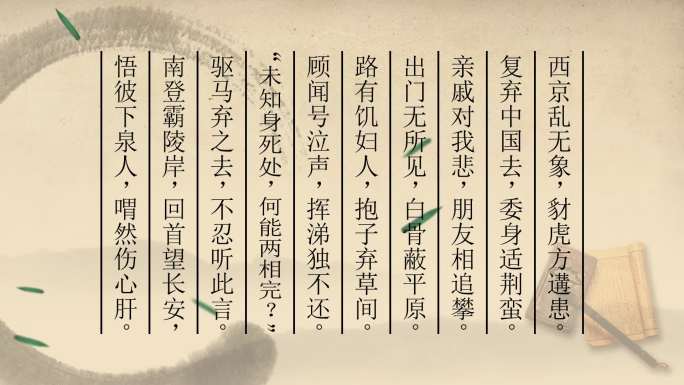 西京乱无象，豺虎方遘患。
复弃中国去，委身适荆蛮。
亲戚对我悲，朋友相追攀。
出门无所见，白骨蔽平原。
路有饥妇人，抱子弃草间。
顾闻号泣声，挥涕独不还。
“未知身死处，何能两相完？”
驱马弃之去，不忍听此言。
南登霸陵岸，回首望长安，
悟彼下泉人，喟然伤心肝。